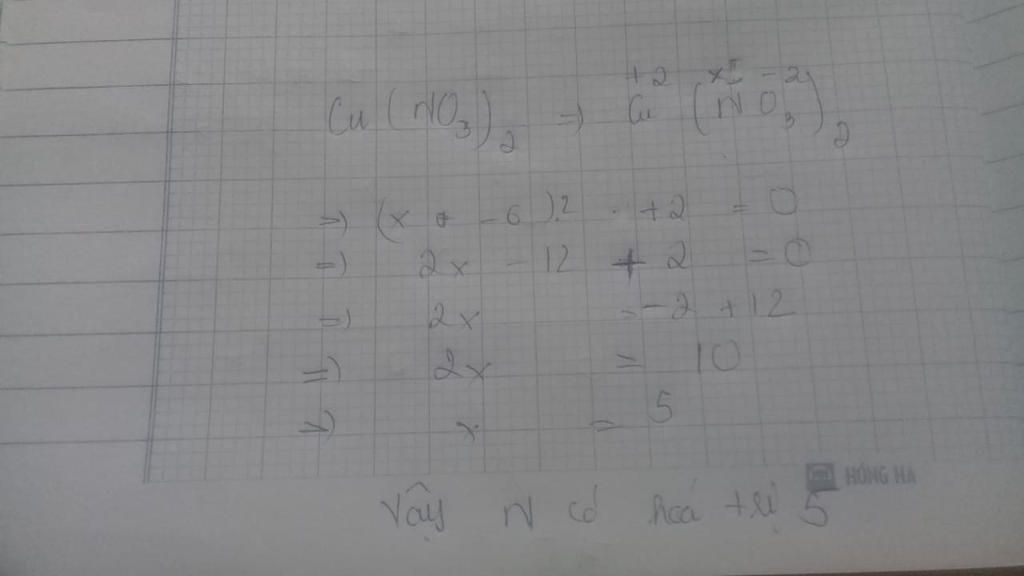 Cu (NO3)2 => +2 Cu (x N -2 O3)2
=> (x + -6).2 + 2 = 0
=> 2x - 12 + 2 = 0
=> 2x = -2 + 12
=> 2x = 10
=> x = 5
HỒNG HÀ
Vậy N có hoá trị 5